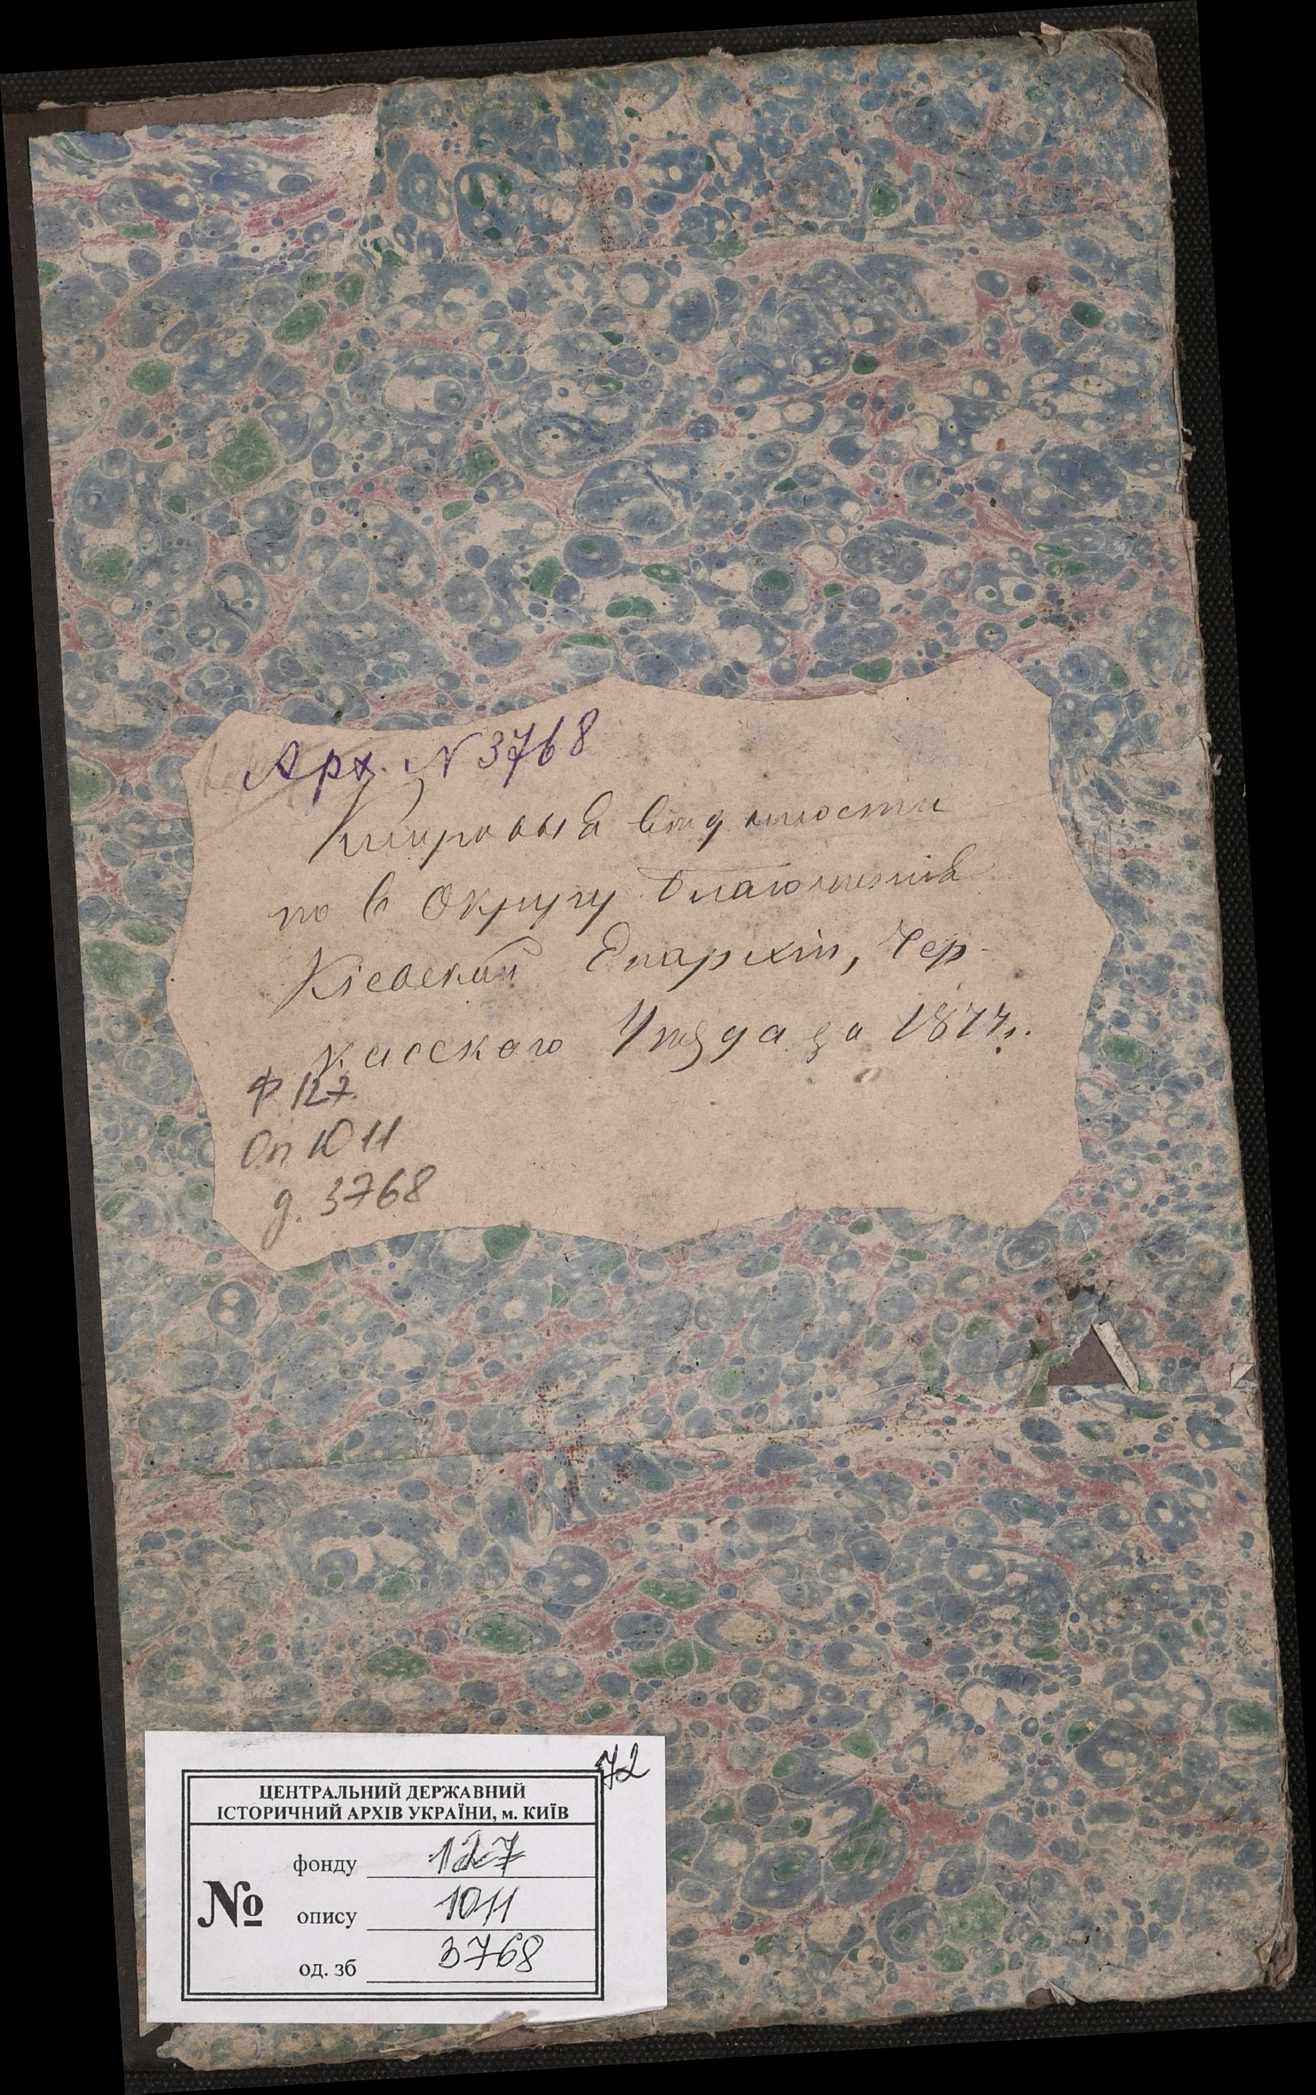 Арх. N 3768
Клировыя вѣдомости
по 6 Округу Благочинія
Кіевской Епархіи, Чер-
касскаго Уѣзда за 1877 г.
Ф. 127.
Оп 1011
д. 3768
72
ЦЕНТРАЛЬНИЙ ДЕРЖАВНИЙ
ІСТОРИЧНИЙ АРХІВ УКРАЇНИ, м. КИЇВ
№
фонду 127
опису 1011
од. зб 3768